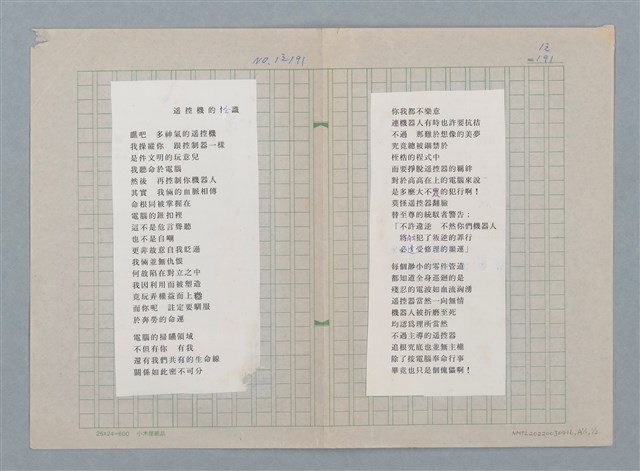 NO. 1至191
1至
191
遥控機的 識
瞧吧　多神氣的遥控機
我操縱你　跟控制器一樣
是件文明的玩意兒
我聽命於電腦
然後　再控制你機器人
其實　我倆的血脈相傳
命根同被掌握在
電腦的鈕扣裡
這不是危言聳聽
也不是自嘲
更非故意自我貶過
我倆並無仇恨
何故陷在對立之中
我因利用而被塑造
竟玩弄權益而上
而你呢　註定要馴服
於奔勞的命運
電腦的掃瞄領域
不但有你　有我
還有我們共有的生命線
關係如此密不可分
你我都不樂意
連機器人有時也許要抗拮
不過　那難於想像的美夢
究竟總被錮禁於
桎梏的程式中
而要掙脫遥控器的羈絆
對於高高在上的電腦來說
是多麼大不 的犯行啊！
莫怪遥控器翻臉
替至尊的統馭者警告；
「不許違逆　不然你們機器人
將 犯了叛逆的罪行
必遭受修理的厄運」
每個渺小的零件管道
都知道全身巡迴的是
殘忍的電波如血流洶湧
遥控器當然一向無情
機器人被折磨至死
均認爲理所當然
不過主導的遥控器
追根究底也並無主權
除了按電腦奉命行事
畢竟也只是個傀儡啊！
25×24=600